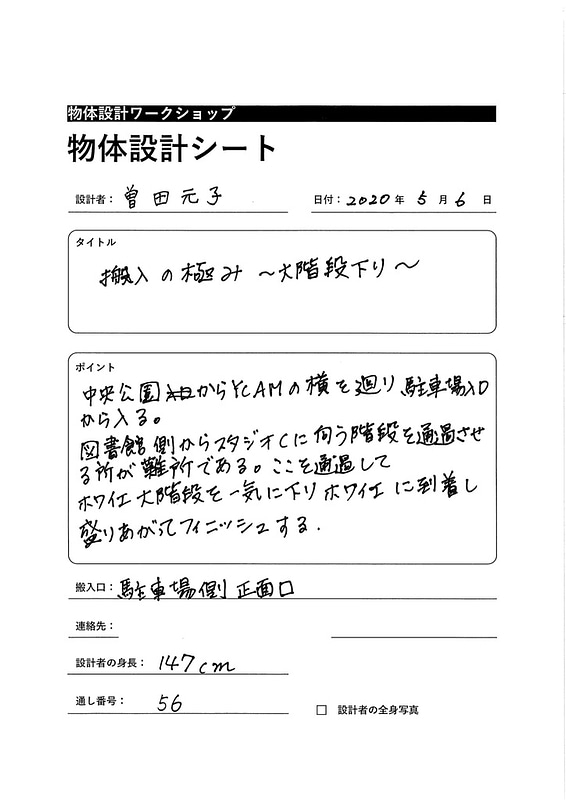 物体設計ワークショップ
物体設計シート
設計者: 曽田元子
日付: 2020年 5月 6日
タイトル
搬入の極み 〜大階段下り〜
ポイント
中央公園からYCAMの横を廻り駐車場入口
から入る。
図書館側からスタジオCに向う階段を通過させ
る所が難所である。ここを通過して
ホワイエ大階段を一気に下りホワイエに到着し
盛りあがってフィニッシュする.
搬入口: 駐車場側正面口
連絡先:
設計者の身長: 147cm
通し番号: 56
□ 設計者の全身写真